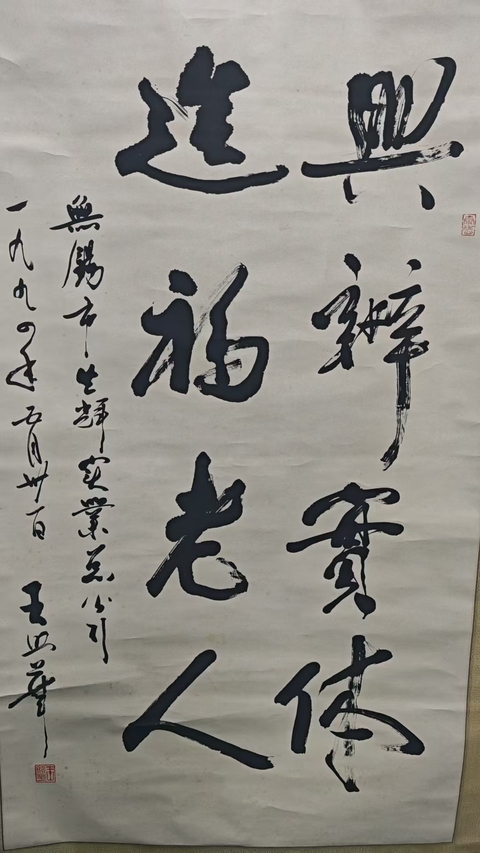 興辦實体
造福老人
無錫市輝实業总公司
一九九四年五月卅一日 王華